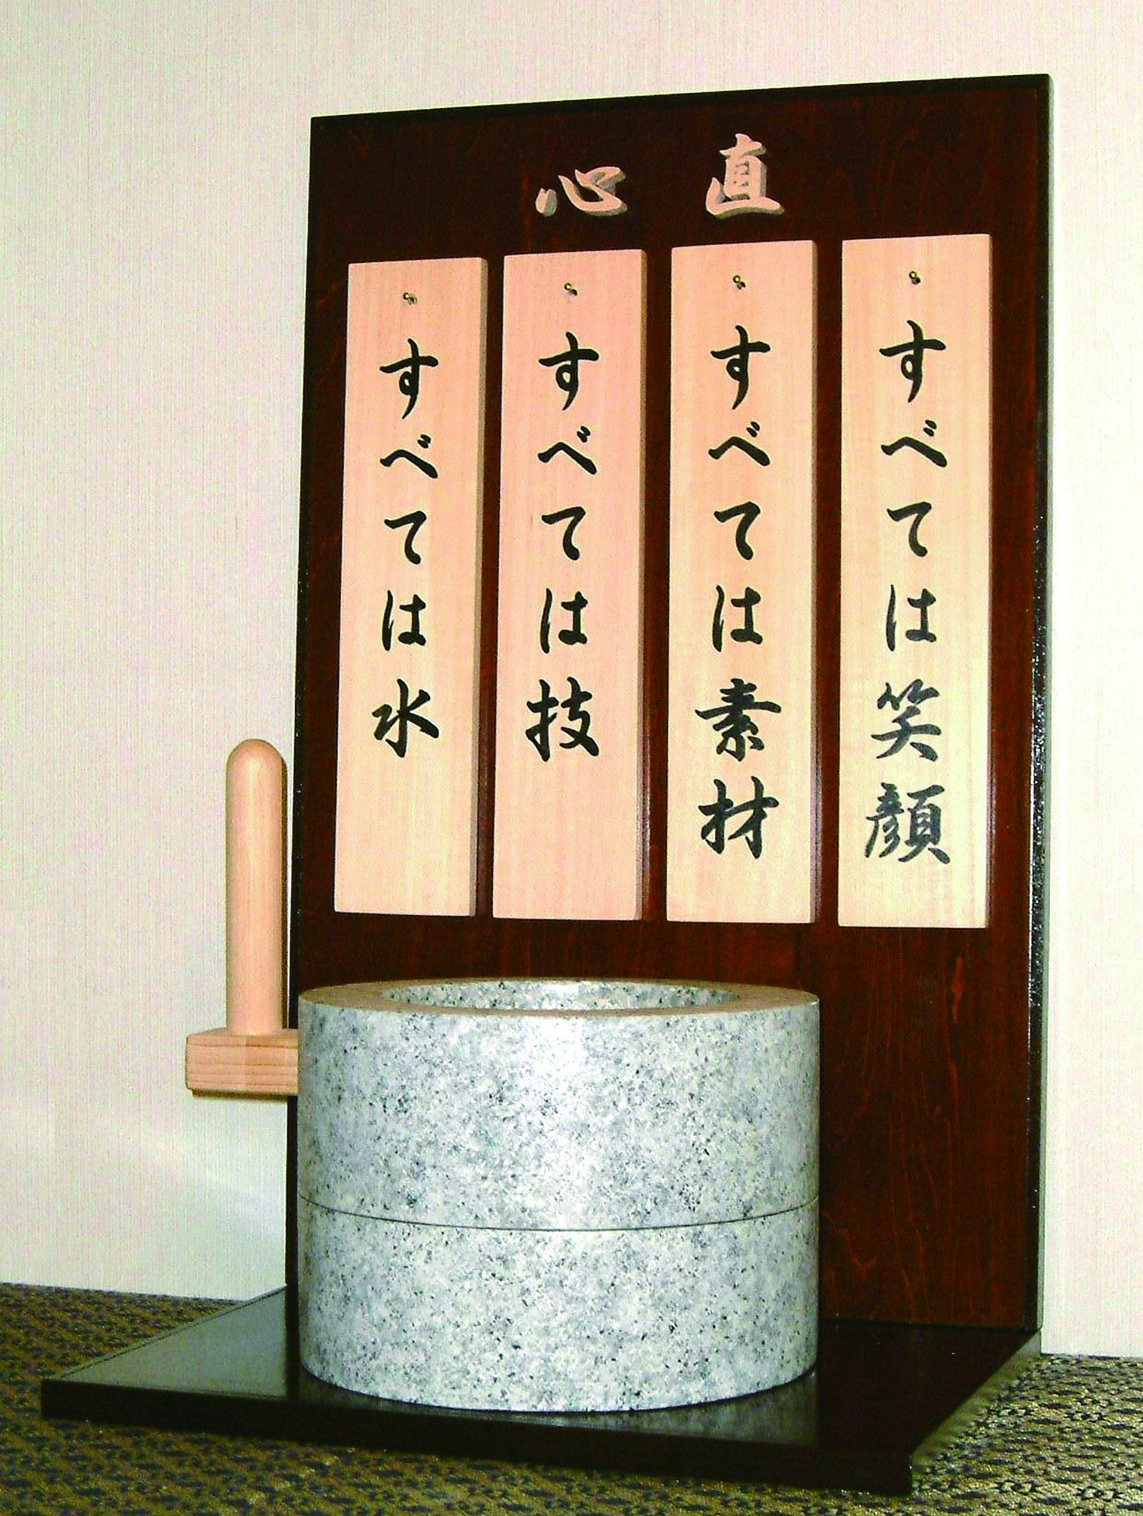 心直
すべては笑顔
すべては素材
すべては技
すべては水